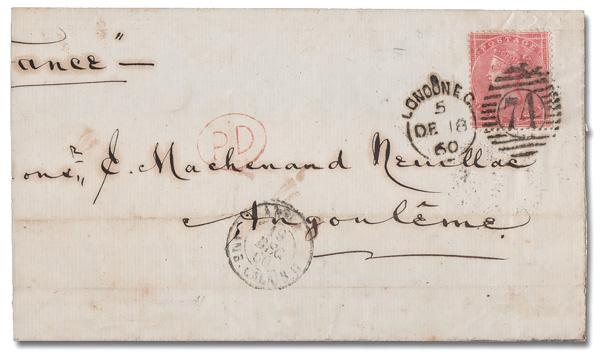 ance" —
POSTAGE
LONDON E.C.
5
DE 18
60
74
PD
ons.r J. Machenand Neuillac
Angoulême